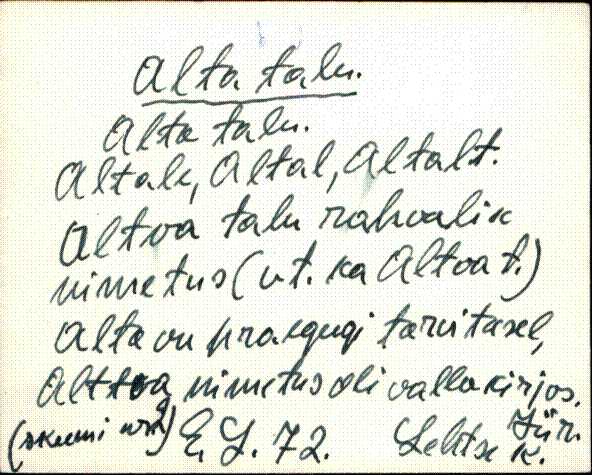 Alta talu.
Alta talu.
Altale, Altal, Altalt.
Altva talu rahvalik
nimetus (vt. ka Altva t.)
Alta on praegugi tarvitasel,
Altva nimetus oli valla kirjas.
(skeemi nr. 2) E. J. 72. Lehtse k. Jür.